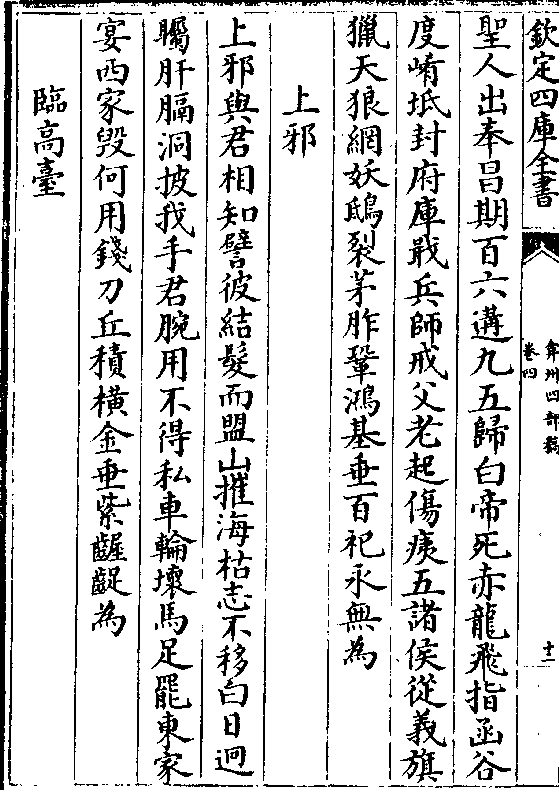 欽定四庫全書
弇州四部稿
卷四
十二
聖人出奉昌期百六遘九五歸白帝死赤龍飛指函谷
度崤坻封府庫戢兵師戒父老起傷痍五諸侯從義旗
獵天狼網妖鴟裂茅胙鞏鴻基垂百祀永無為
上邪
上邪與君相知譬彼結髮而盟山摧海枯志不移白日迥
矚肝膈洞披我手君腕用不得私車輪壞馬足罷東家
宴西家毀何用錢刀丘積橫金垂紫齷齪為
臨高臺